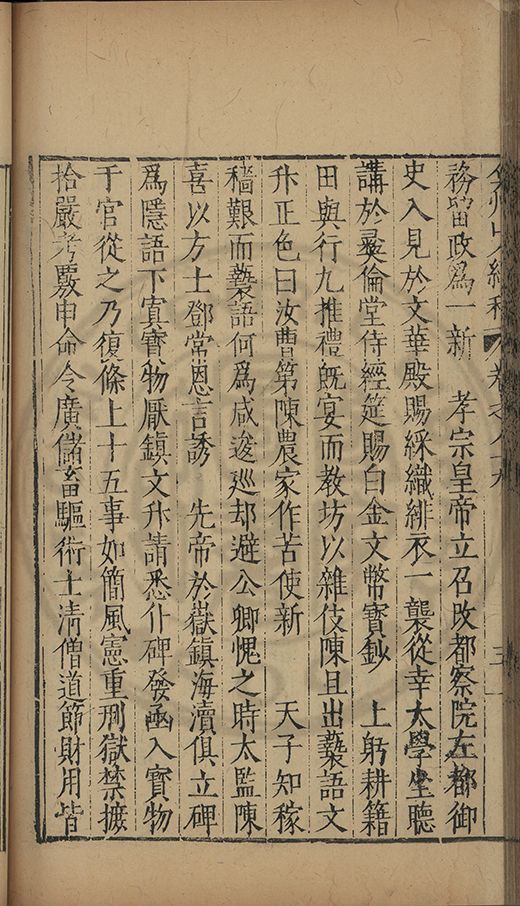 務留政爲一新　孝宗皇帝立召改都察院左都御
史入見於文華殿賜綵織緋衣一襲從幸太學坐聽
講於彛倫堂侍經筵賜白金文幣寶鈔　上躬耕籍
田與行九推禮旣宴而教坊以雜伎陳且出褻語文
升正色曰汝曹第陳農家作苦使新　天子知稼
穡艱而褻語何爲咸逡巡却避公卿愧之時太監陳
喜以方士鄧常恩言誘　先帝於嶽鎮海瀆俱立碑
爲隱語下寘寶物厭鎮文升請悉仆碑發函入寶物
于官從之乃復條上十五事如簡風憲重刑獄禁摭
拾嚴考覈申命令廣儲畜驅術士清僧道節財用皆